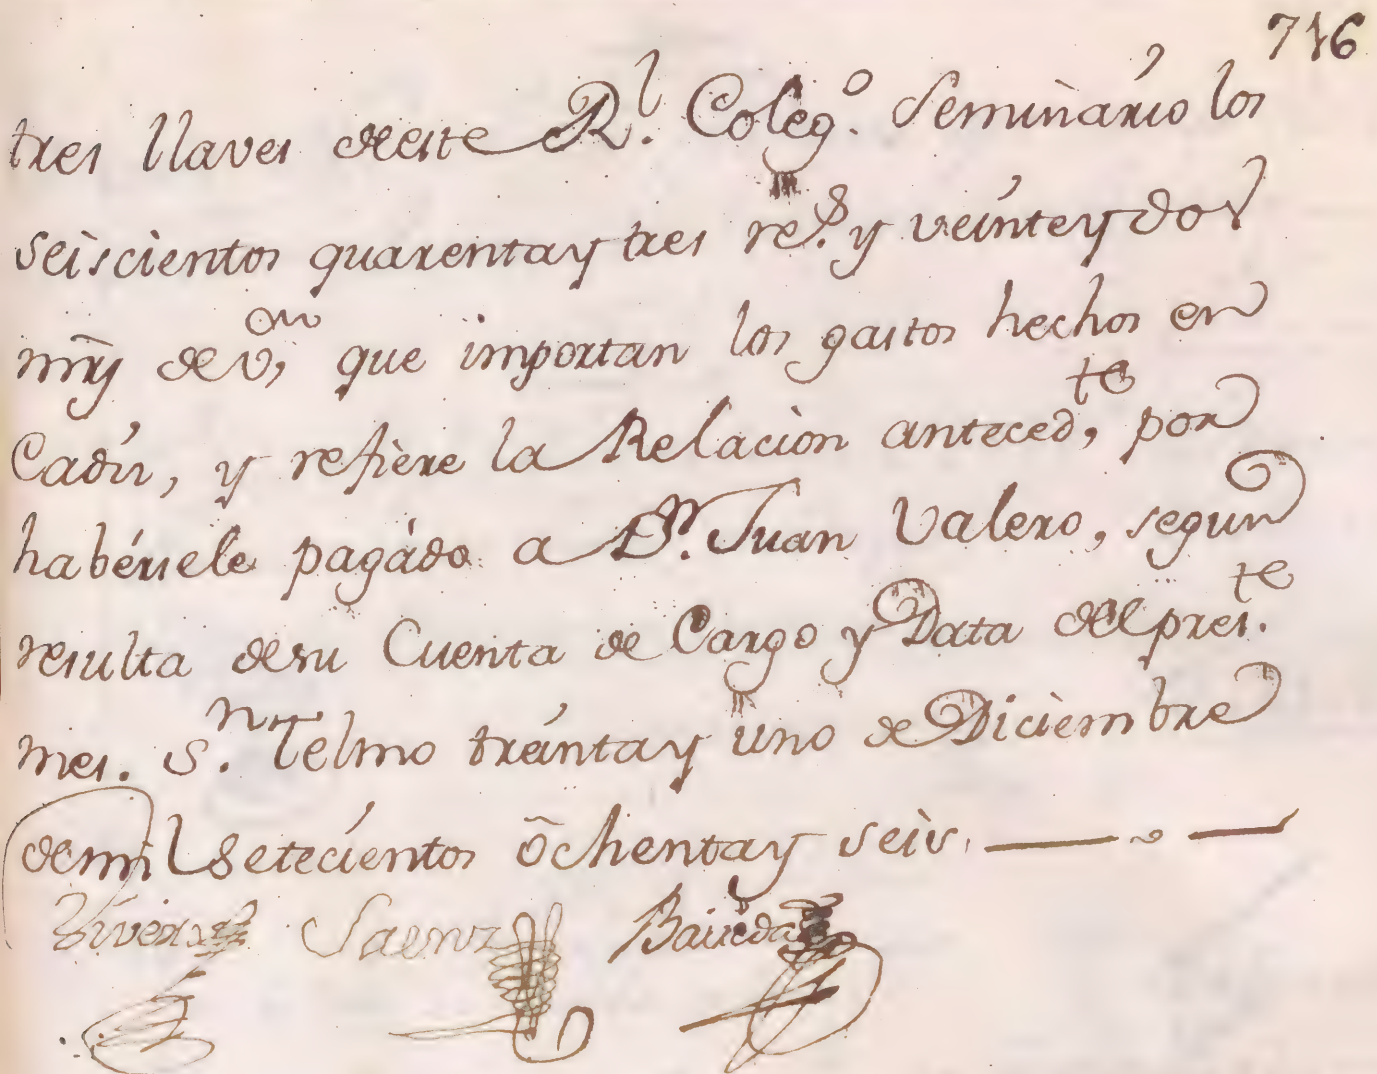 716
tres llaves deste Rl. Colego. Seminàrio los
seiscientos quarentay tres rs. y veinteydos
mrs de von, que importan los gastos hechos en
Cadiz, y refière la Relaciòn antecedte, por
habérsele pagádo a Dn. Juan Valero, segun
resulta desu Cuenta de Cargo y Data delpreste.
mes. Sn. Telmo tréintay uno de Diciembre
demil setecientos ochentay seis.
Saenz